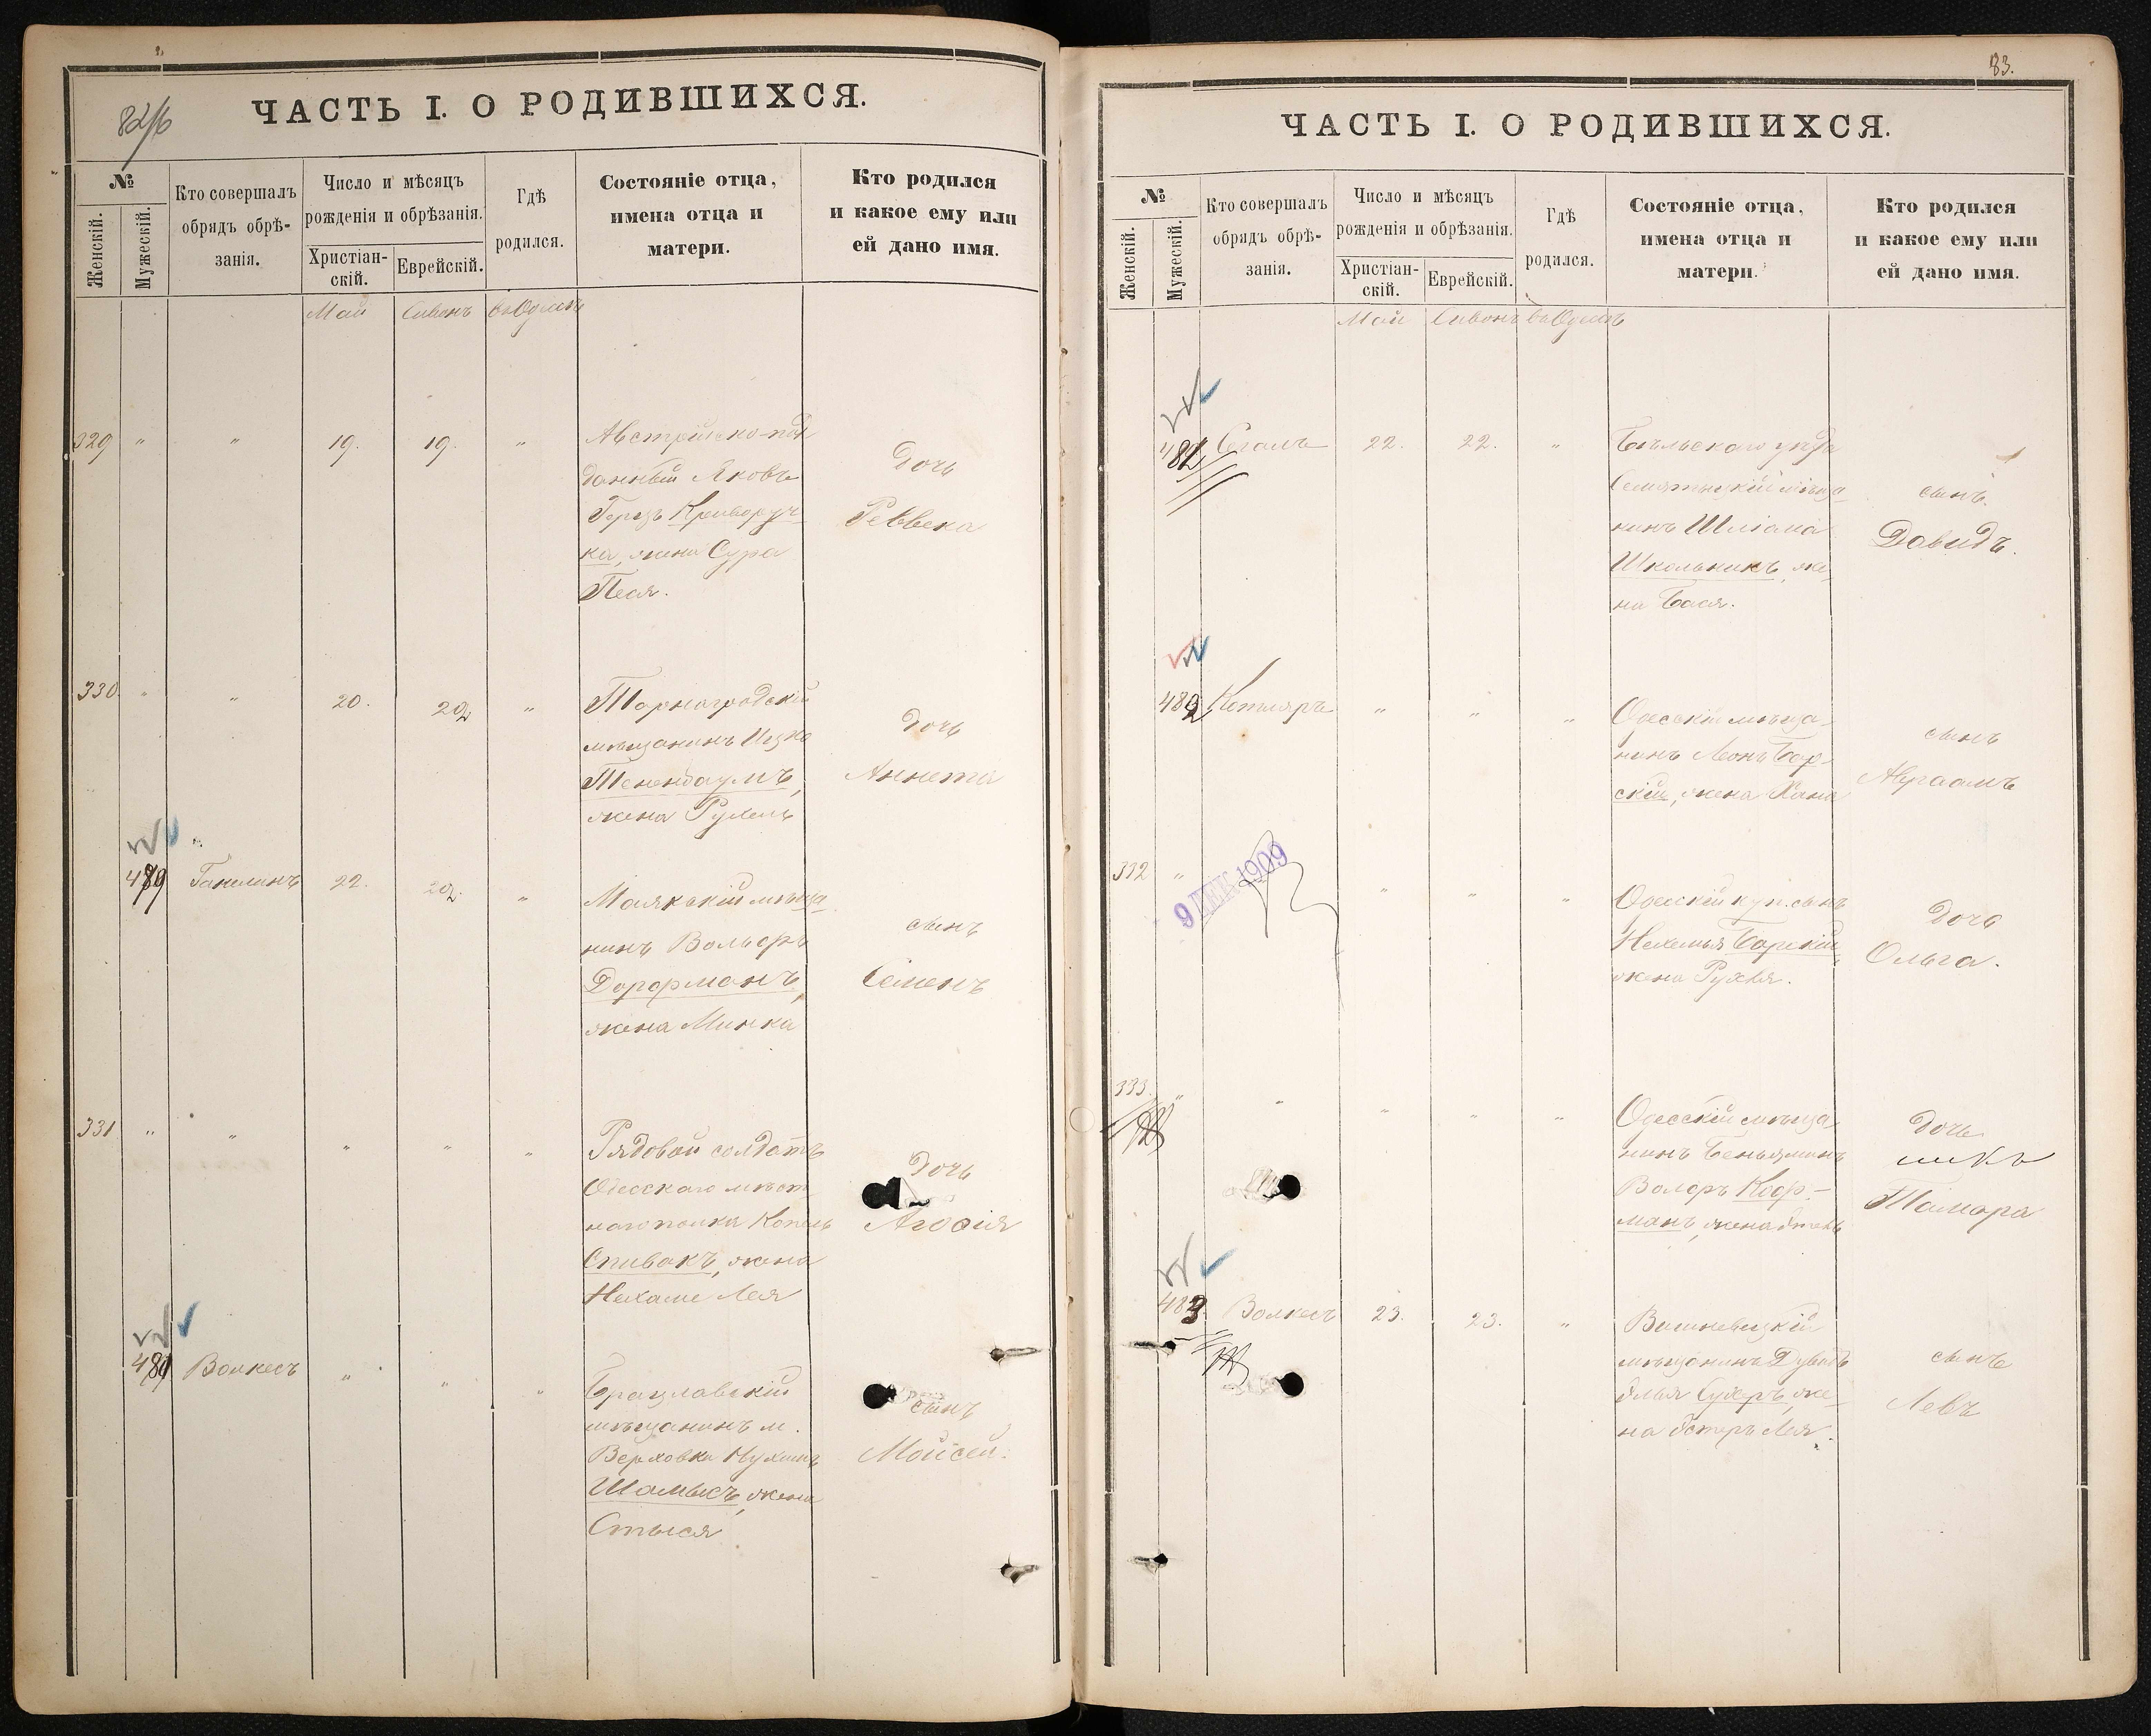 ЧАСТЬ I. О РОДИВШИХСЯ.
№
Женскій.
Мужескій.
Кто совершалъ
обрядъ обрѣ-
занія.
Число и мѣсяцъ
рожденія и обрѣзанія.
Христіан-
скій.
Еврейскій.
Гдѣ
родился.
Состояніе отца,
имена отца и
матери.
Кто родился
и какое ему или
ей дано имя.
Май Сивонъ въ Одессѣ
329 " " 19. 19. "
Австрійско-под
данный Яковъ
Герзъ Криворуч-
ка, жена Сура
Песя.
Дочь
Реввека
330. " " 20. 20 "
Тарногродскій
мѣщанинъ Ицко
Тененбаумъ,
жена Рухель
Дочь
Аннета
479 Ганелинъ 22. "
Маякскій мѣща
нинъ Вольфъ
Дорфманъ,
жена Минка
сынъ
Семенъ
331 " " " " "
Рядовой солдатъ
Одесскаго мѣст
наго полка Копель
Спивакъ, жена
Нехаме Лея
Дочь
480 Волкесъ " " "
Брацлавскій
мѣщанинъ м.
Верховка Нухимъ
Шамысъ, жена
Стыся
сынъ
Мойсей.
83.
ЧАСТЬ I. О РОДИВШИХСЯ.
№
Женскій.
Мужескій.
Кто совершалъ
обрядъ обрѣ-
занія.
Число и мѣсяцъ
рожденія и обрѣзанія.
Христіан-
скій.
Еврейскій.
Гдѣ
родился.
Состояніе отца,
имена отца и
матери.
Кто родился
и какое ему или
ей дано имя.
Май Сивонъ въ Одессѣ
481 Сегалъ 22. 22. "
Бѣльскаго уѣзда
Семятыцкій мѣща-
нинъ Шліома
Школьникъ, же-
на Бася.
сынъ.
Давидъ.
482 Котляръ " " "
Одесскій мѣща-
нинъ Леонъ Бар-
скій, жена Хана
сынъ
Авраамъ
332 " " " "
9 ДЕК 1909
Одесскій куп. сынъ
Нехемья Барскій,
жена Рухля.
Дочь
Ольга.
333. " " " " "
Одесскій мѣща
нинъ Беньяминъ
Волфъ Кооф-
манъ, жена
Дочь
Тамара
483 Волкесъ 23. 23. "
Вишневецкій
мѣщанинъ Дувидъ
Элья Сухеръ, же-
на Эстеръ Лея.
сынъ
Левъ